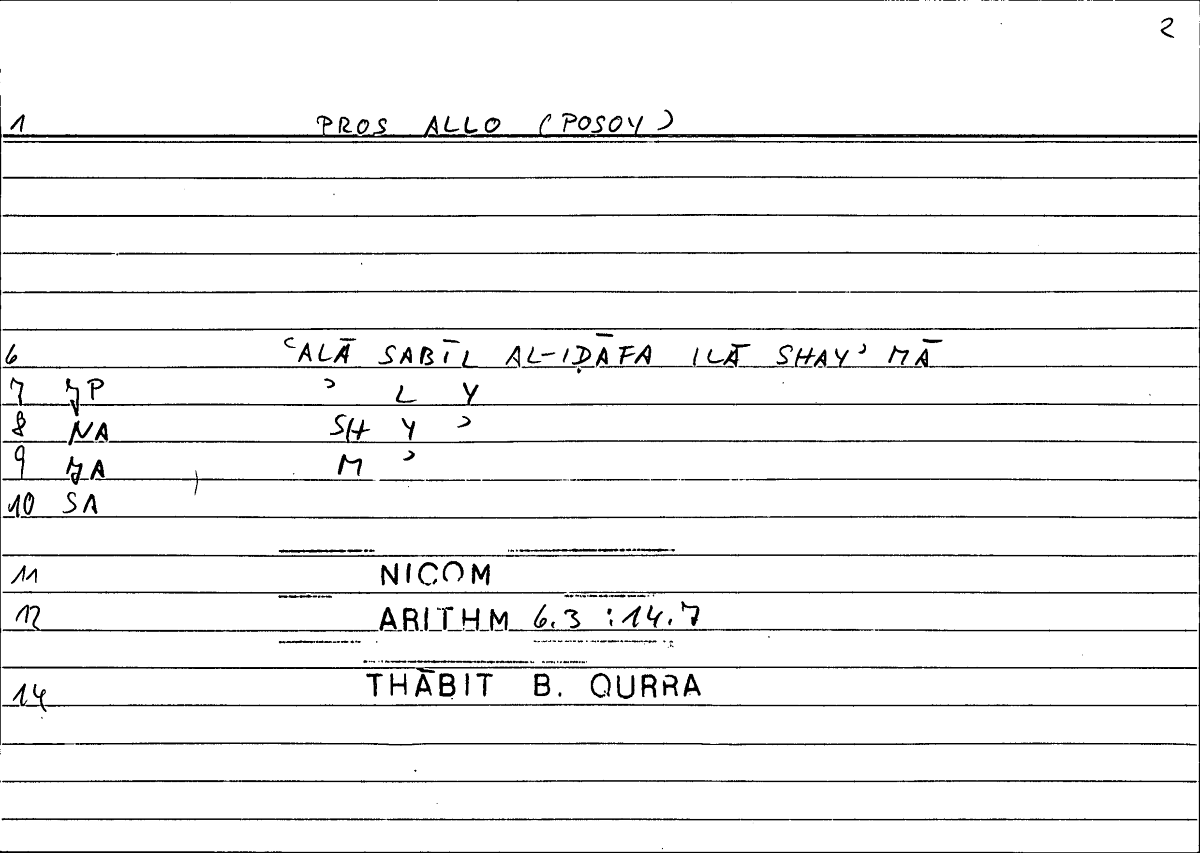 2
1 PROS ALLO (POSOY)
6 ʿALĀ SABĪL AL-IḌĀFA ILĀ SHAYʾ MĀ
7 ʾ L Y
8 NA SH Y ʾ
9 M ʾ
10 SA
11 NICOM
12 ARITHM 6.3 : 14.7
14 THĀBIT B. QURRA